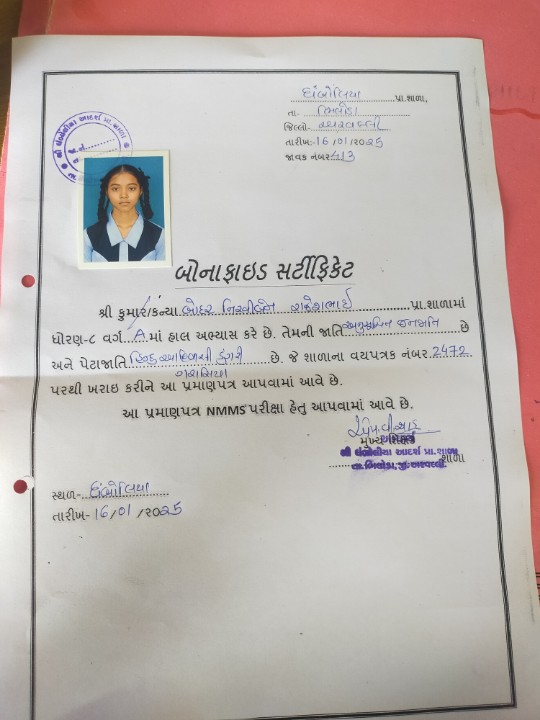 ધંબોલિયા પ્રા.શાળા,
તા. ભિલોડા
જિલ્લો. અરવલ્લી
તારીખ:-16/01/2025
જાવક નંબર 113
શ્રી ધંબોલીયા આદર્શ પ્રા. શાળા
જા.નં.
બોનાફાઇડ સર્ટીફિકેટ
શ્રી કુમાર/કન્યા પ્રા.શાળામાં
ધોરણ-૮ વર્ગ. A માં હાલ અભ્યાસ કરે છે. તેમની જાતિ અનુસૂચિત જનજાતિ છે
અને પેટાજાતિ હિન્દુ ડુંગરી છે. જે શાળાના વયપત્રક નંબર 2472
ગરાસિયા
પરથી ખરાઇ કરીને આ પ્રમાણપત્ર આપવામાં આવે છે.
આ પ્રમાણપત્ર NMMS પરીક્ષા હેતુ આપવામાં આવે છે.
મુખ્ય શિક્ષક
શ્રી ધંબોલીયા આદર્શ પ્રા. શાળા
શાળા
તા. ભિલોડા, જી. અરવલ્લી
સ્થળ-ધંબોલિયા
તારીખ-16/01/2025